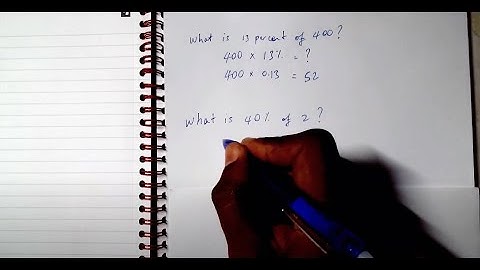 What is 13 percent of 400?
400 × 13% = ?
400 × 0.13 = 52
What is 40% of 2?